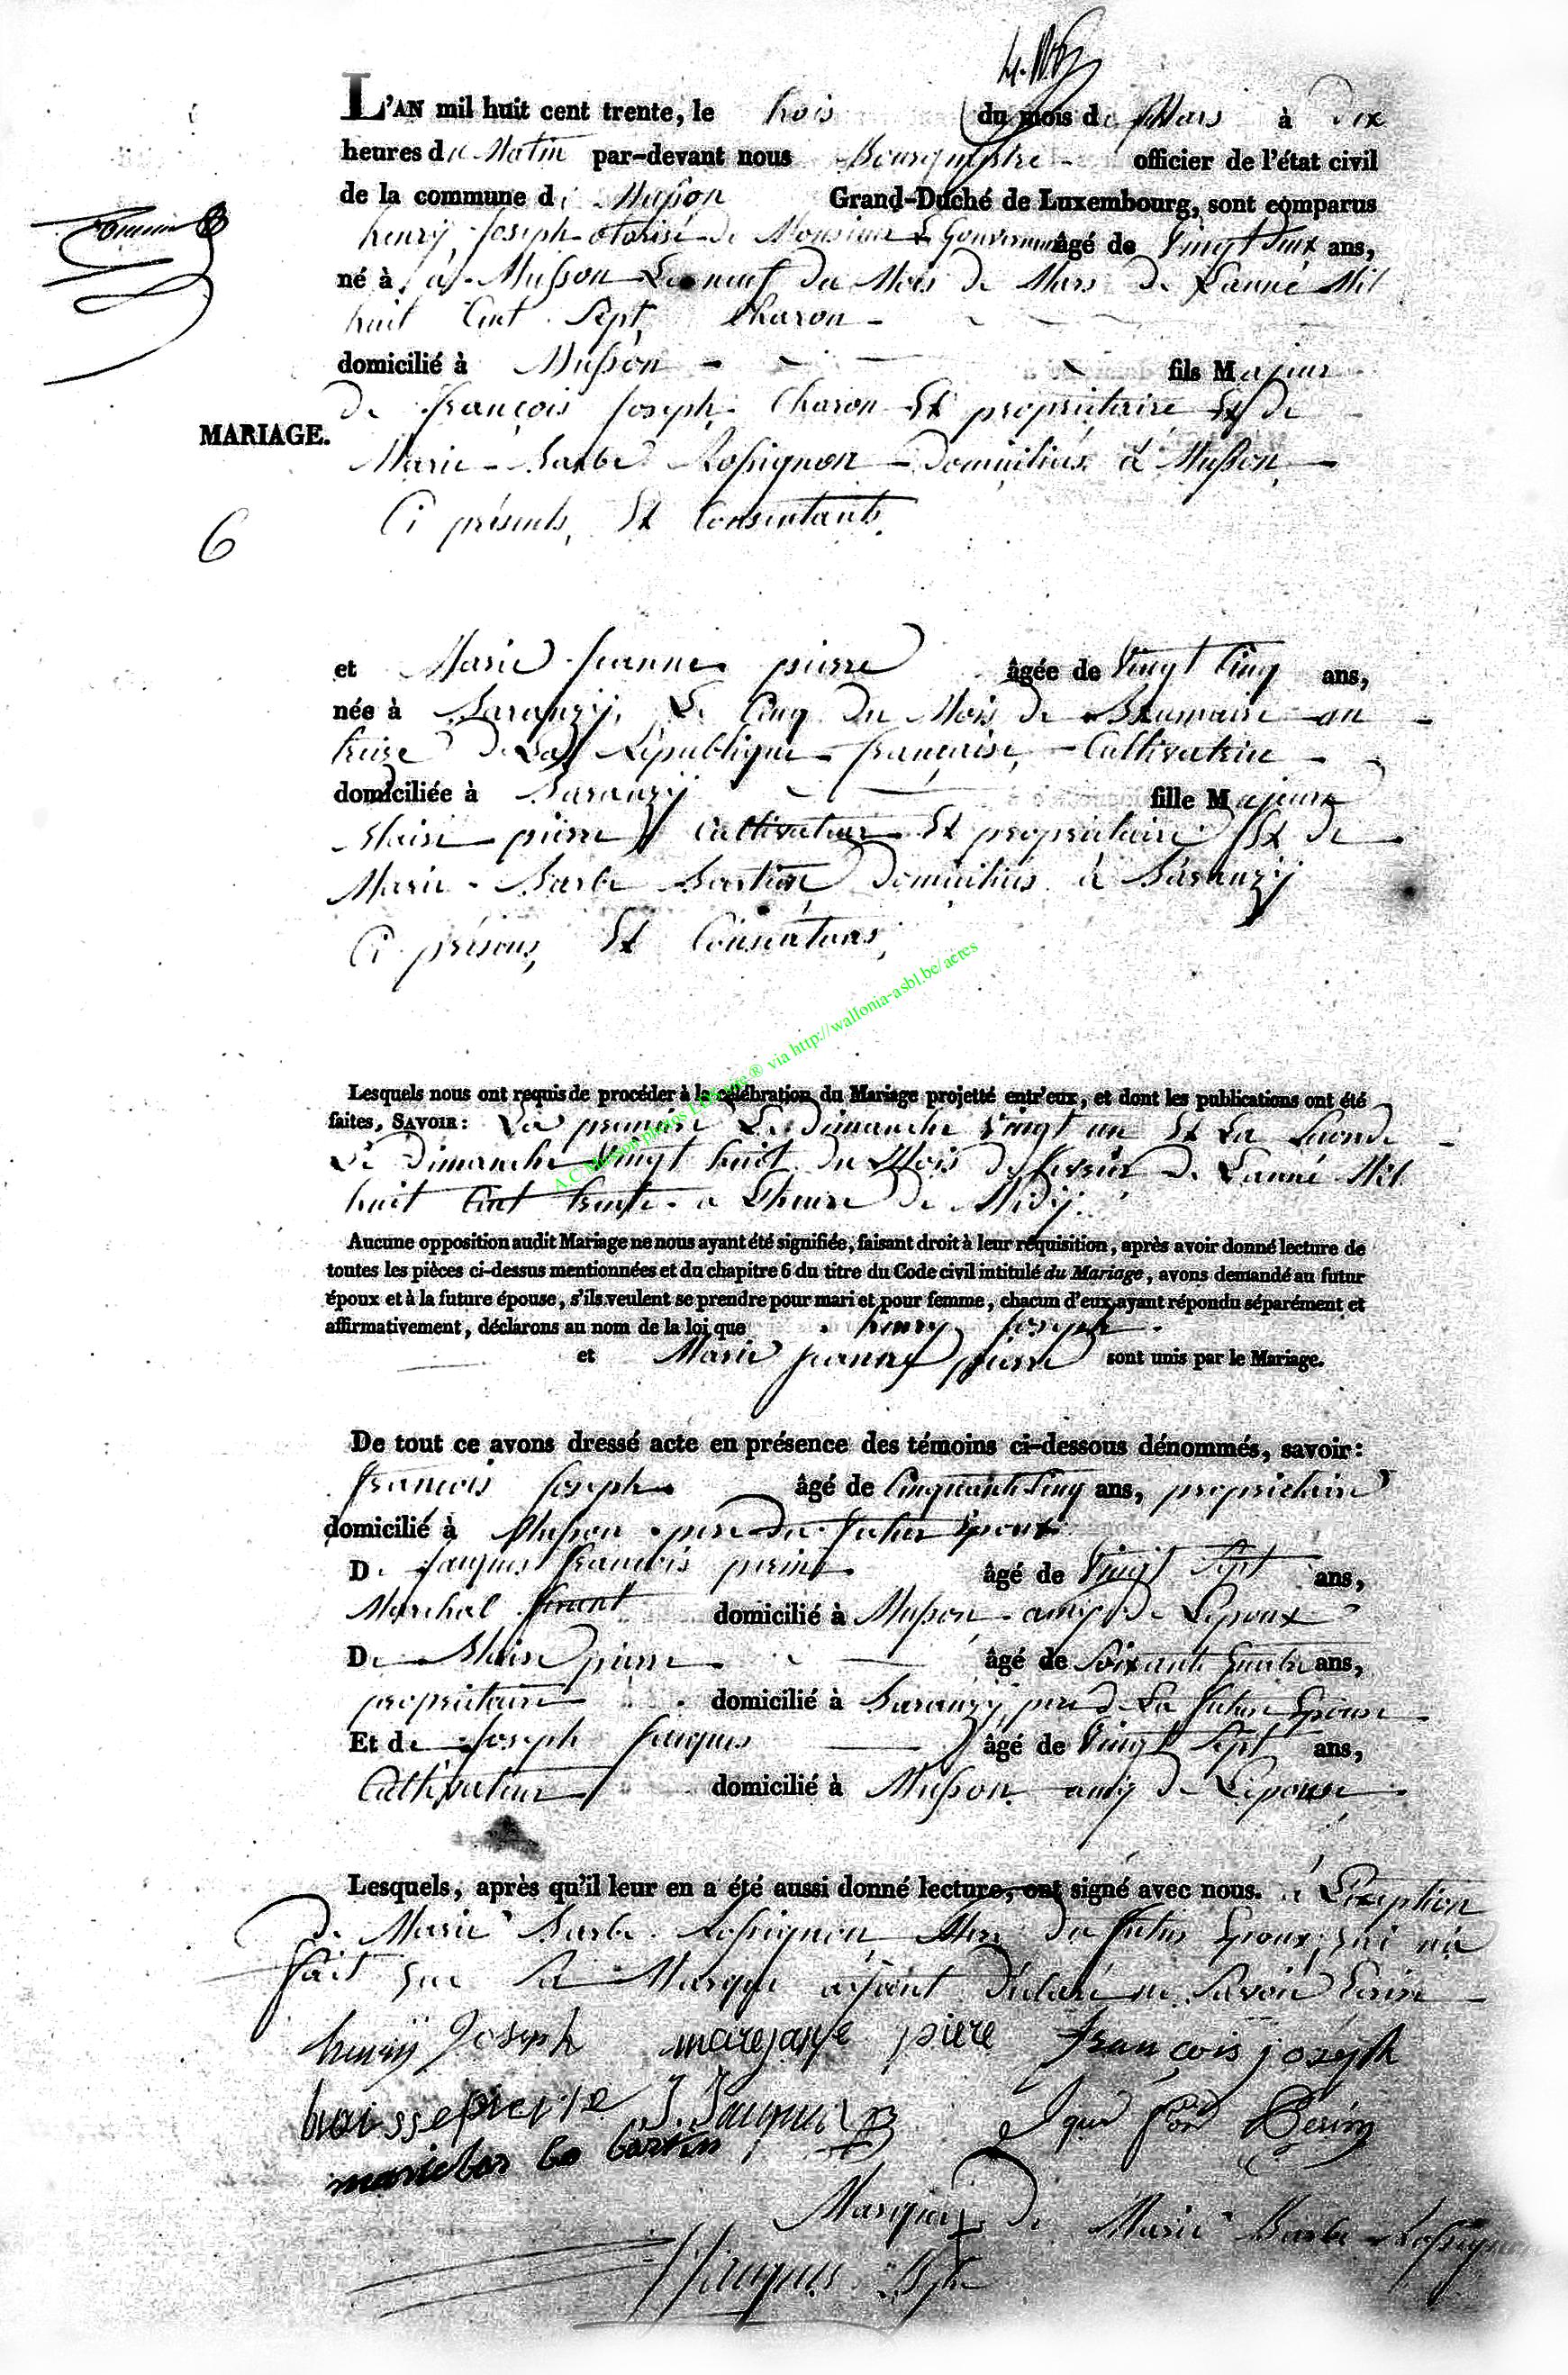 L'AN mil huit cent trente, le trois du mois de Mars à dix
heures du Matin par-devant nous Bourguemestre officier de l'état civil
de la commune de Musson Grand-Duché de Luxembourg, sont comparus
henry Joseph otorisé de Monsieur Le Gouverneur âgé de Vingt deux ans,
né à à Musson Le neuf du Mois de Mars de L'anné Mil
huit Cent Sept, Charon
domicilié à Musson fils Majeur
de françois Joseph Charon Et propriétaire Et de
MARIAGE.
Marie Barbe Rossignon domiciliés à Musson
6
Ci présents, Et Consentants,
et Marie Jeanne pierre âgée de Vingt Cinq ans,
née à Baranzÿ, Le Cinq du Mois de Brumaire an
treize de La République française, Cultivatrice
domiciliée à Baranzÿ fille Majeure
Blaise pierre Cultivateur Et propriétaire Et de
Marie Barbe Bartin domiciliés à Baranzÿ
Ci présens, Et Consentans,
A.C. Musson photos via http://wallonia-asbl.be/actes
Lesquels nous ont requis de procéder à la célébration du Mariage projetté entr'eux, et dont les publications ont été
faites, SAVOIR: La premiere Le dimanche Vingt un Et La Seconde
Le dimanche Vingt huit du Mois de fevrier de L'anné Mil
huit Cent trente a L'heure de Midÿ.
Aucune opposition audit Mariage ne nous ayant été signifiée, faisant droit à leur réquisition, après avoir donné lecture de
toutes les pièces ci-dessus mentionnées et du chapitre 6 du titre du Code civil intitulé du Mariage, avons demandé au futur
époux et à la future épouse, s'ils veulent se prendre pour mari et pour femme, chacun d'eux ayant répondu séparément et
affirmativement, déclarons au nom de la loi que henry Joseph
et Marie Jeanne pierre sont unis par le Mariage.
De tout ce avons dressé acte en présence des témoins ci-dessous dénommés, savoir:
francois Joseph âgé de Cinquante Cinq ans, propriétaire
domicilié à Musson pere du futur Epoux
De Jacques francois perin âgé de Vingt Sept ans,
Marchal ferant domicilié à Musson amiy de L'epoux
De Blaise pierre âgé de Soixante quatre ans,
propriétaire domicilié à Baranzÿ, pere de La future Epouse
Et de Joseph Jacques âgé de Vingt Sept ans,
Cultivateur domicilié à Musson amiy de L'epouse
Lesquels, après qu'il leur en a été aussi donné lecture, ont signé avec nous. à L'exception
de Marie Barbe Rossignon Mere du futur Epoux, qui n'a
fait que Sa Marque aÿant déclaré ne Savoir Ecrire
henrÿ Joseph mareganne piere françois joseph
blaisse pierre J. Jacques Jques fois Perin
mariebar be bartin
Marque de Marie Barbe Rossignon
Jacques